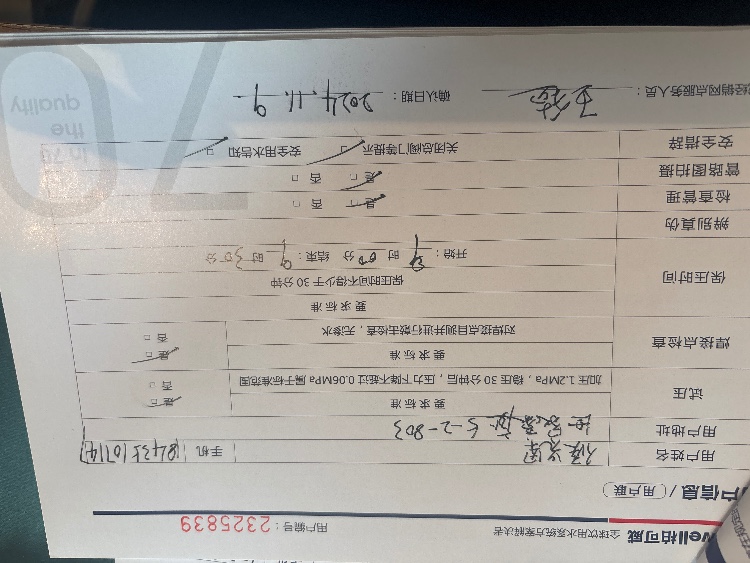 well柏可威 全球饮用水系统方案解决者 用户编号：2325839
户信息 /（用户联）
用户姓名 手机
用户地址 5-2-803
试压 要求标准 是 否
加压1.2MPa，稳压30分钟后，压力下降不超过0.06MPa属于标准范围
焊接点检查 要求标准 是 否
对焊接点目测并进行敲击检查，无渗水
保压时间 要求标准
保压时间不得少于30分钟
开始：9时00分 结束：9时30分
辨别真伪
检查管理 是 否
管路图拍摄 是 否
安全措辞 关闭总阀门等提示 安全用水告知
经销网点服务人员： 确认日期：2024.11.9
in 70
the
quality